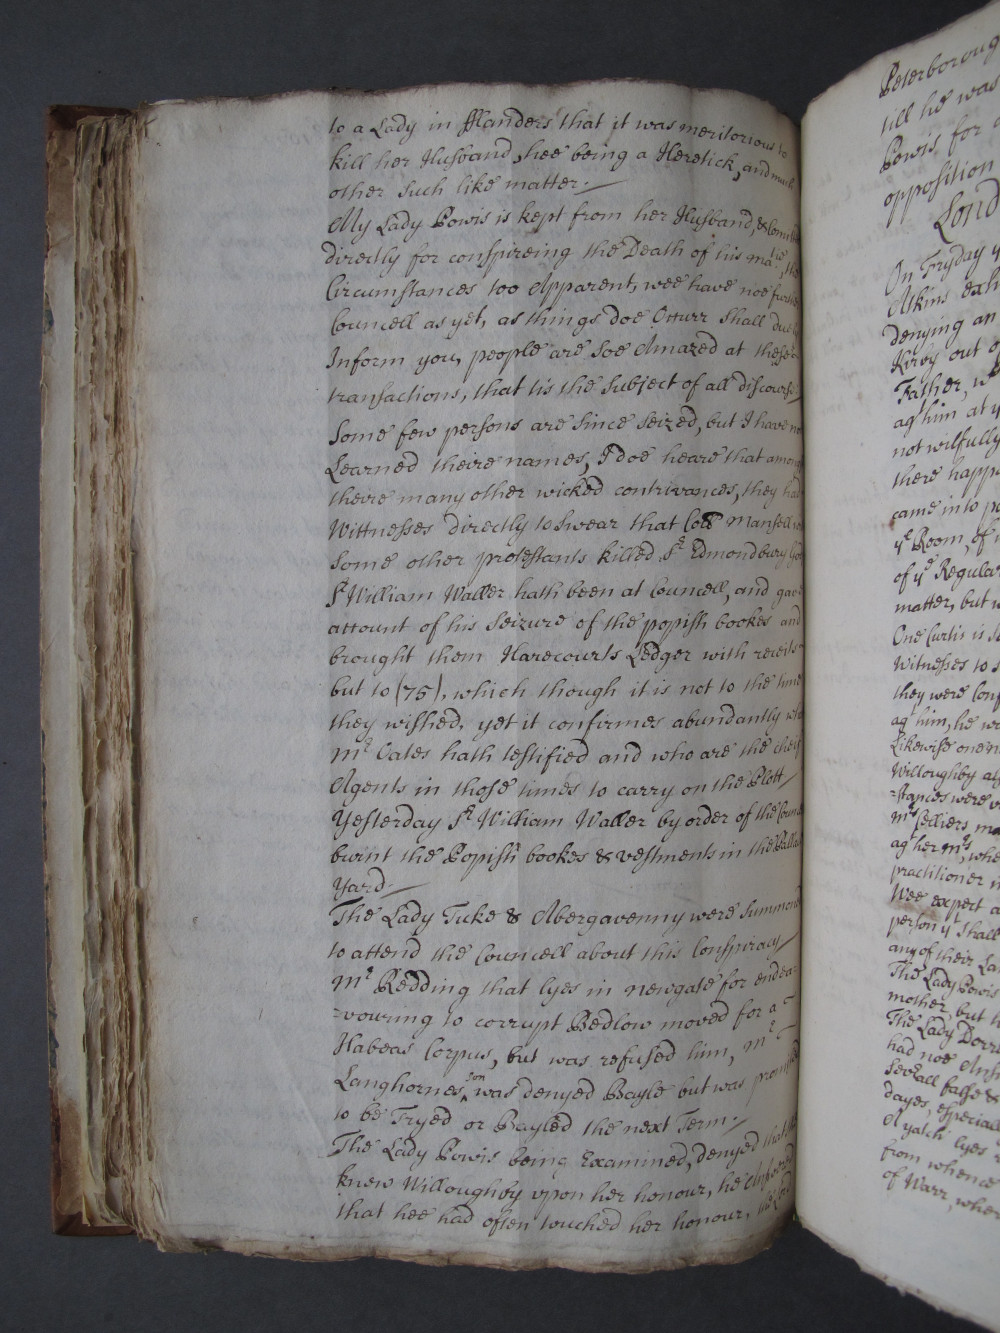 to a Lady in fflanders that it was meritorious to
kill her Husband, hee being a Heretick, and much
other such like matter.
My Lady Powis is kept from her Husband, &
directly for conspireing the Death of his matie, the
Circumstances too Apparent, wee have noe further
Councell as yet, as things doe Occurr shall
Inform you, people are soe Amazed at these
transactions, that tis the subject of all discourse
Some few persons are since seized, but I have not
Learned theire names, I doe heare that among
theire many other wicked contrivances, they had
Wittnesses directly to swear that Coll Mansell
some other protestants killed Sr Edmondbury
Sr William Waller hath been at Councell, and gave
account of his Seizure of the popish bookes and
brought them Harecourts Ledger with
but to (75), which though it is not to the time
they wished, yet it confirmes abundantly
Mr Oates hath testified and who are the cheif
Agents in those times to carry on the Plott
Yesterday Sr William Waller by order of the
burnt the Popish bookes & vestments in the Pallace
yard
The Lady Tuke & Abergavenny were summoned
to attend the Councell about this Conspiracy
Mr Redding that lyes in Newgate for endea=
=vouring to corrupt Bedlow moved for a
Habeas Corpus, but was refused him, Mr
Langhornes son was denyed Bayle but was promised
to be Tryed or Bayled the next Term.
The Lady Powis being Examined, denyed that she
knew Willoughby upon her honour, he Answered
that hee had often touched her honour,
Peterborough
till he was
Powis, for
opposition
Lond
On Fryday
Atkins
denying an
Kirby out of
Father,
agt him at
not wilfully
there happ
came into
ye Room, of
of ye Regular
matter, but
One Curtis is
Witnesses to
they were
agt him, he
Likewise one
Willoughby
=stances were
Mrs Celliers
agt her
practitioner
Wee expect a
person yt shall
any of their
The Lady Powis
mother, but
The Lady
had noe
severall false &
dayes, especiall
A yatch lyes
from whence
of Warr, where